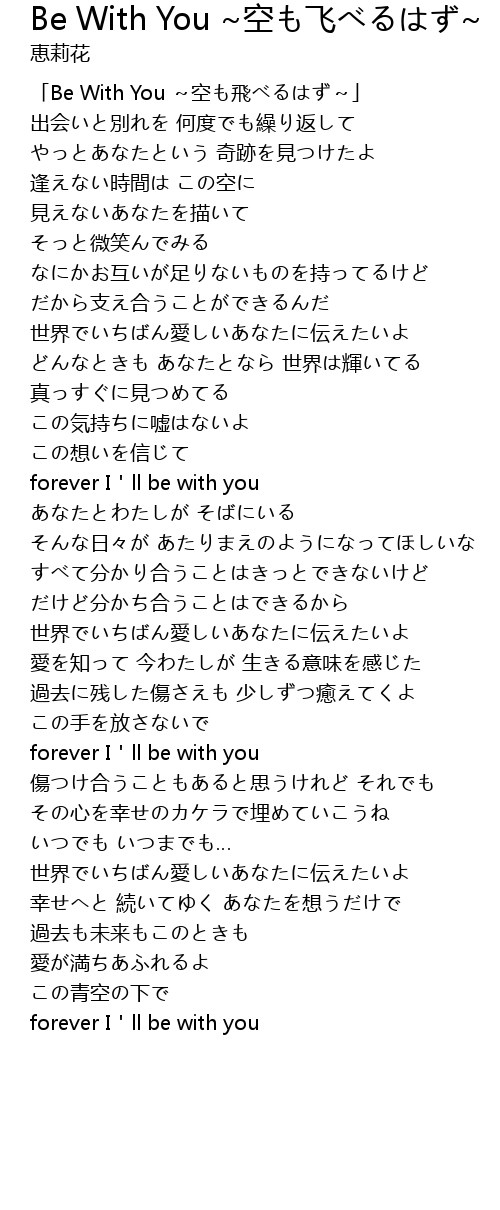 Be With You ~空も飞べるはず~
恵莉花
「Be With You ～空も飛べるはず～」
出会いと別れを 何度でも繰り返して
やっとあなたという 奇跡を見つけたよ
逢えない時間は この空に
見えないあなたを描いて
そっと微笑んでみる
なにかお互いが足りないものを持ってるけど
だから支え合うことができるんだ
世界でいちばん愛しいあなたに伝えたいよ
どんなときも あなたとなら 世界は輝いてる
真っすぐに見つめてる
この気持ちに嘘はないよ
この想いを信じて
forever I ' ll be with you
あなたとわたしが そばにいる
そんな日々が あたりまえのようになってほしいな
すべて分かり合うことはきっとできないけど
だけど分かち合うことはできるから
世界でいちばん愛しいあなたに伝えたいよ
愛を知って 今わたしが 生きる意味を感じた
過去に残した傷さえも 少しずつ癒えてくよ
この手を放さないで
forever I ' ll be with you
傷つけ合うこともあると思うけれど それでも
その心を幸せのカケラで埋めていこうね
いつでも いつまでも...
世界でいちばん愛しいあなたに伝えたいよ
幸せへと 続いてゆく あなたを想うだけで
過去も未来もこのときも
愛が満ちあふれるよ
この青空の下で
forever I ' ll be with you